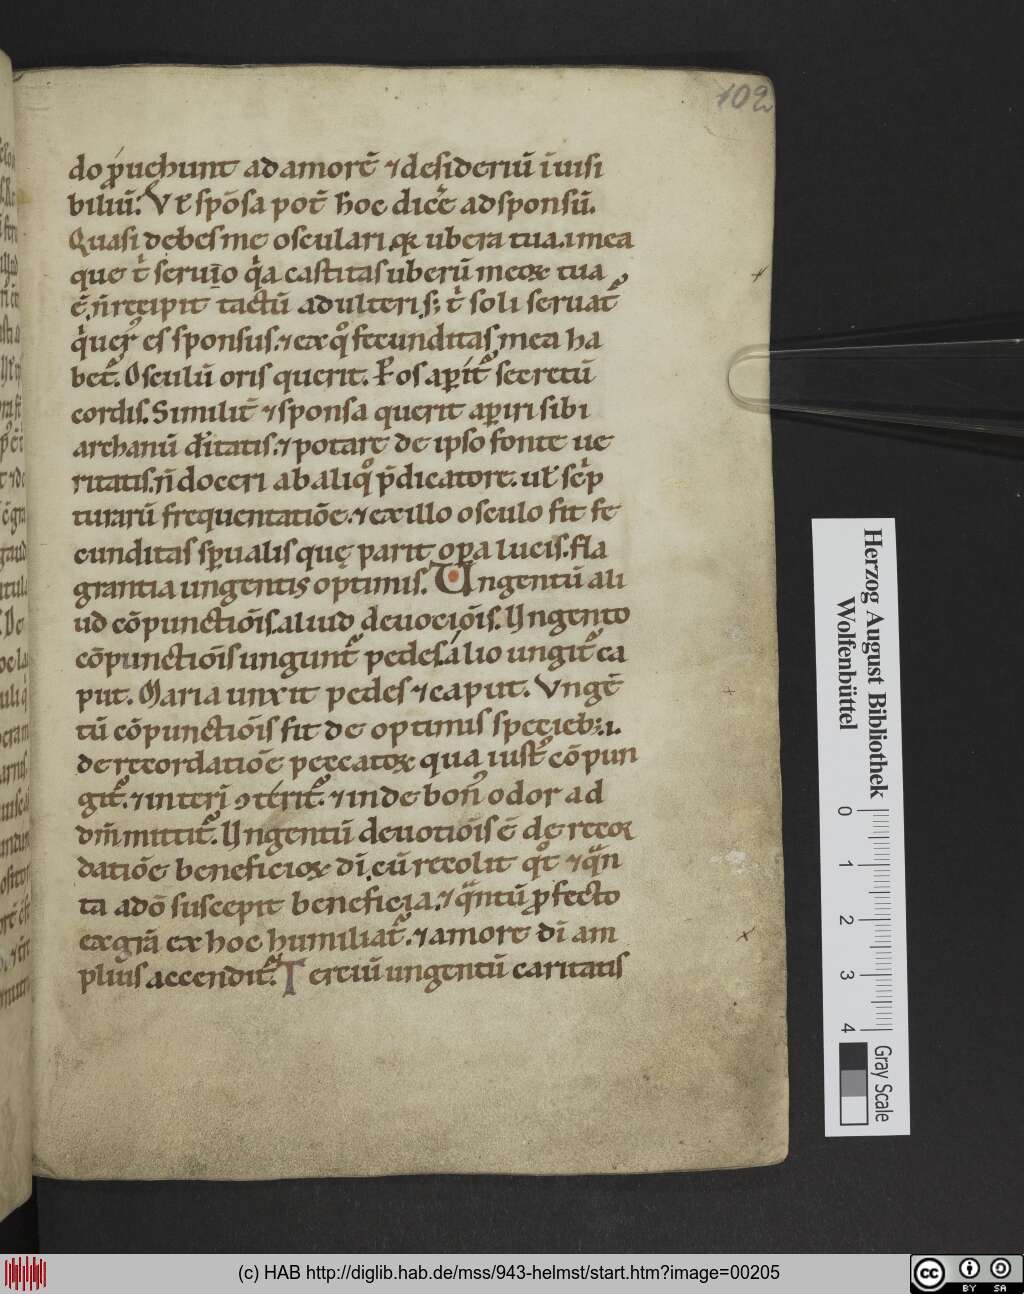 102
do p̄uehunt ad amorē ⁊ desideriū ī uisi
biliū. Vt spōsa pot̄ hoc dicē ad sponsū.
Quasi debes me osculari. qꝛ ubera tua. i mea
que t̄ seruio qͥa castitas uberū meoꝝ tua
ē. n̄ recipit tactū adulteri. sꝫ t̄ soli seruat᷑
es sponsus. ⁊ ex qͦ fecunditas mea ha
bet᷑. Osculū oris querit. Ros aꝑit᷑ secretū
cordis. Similit̄ ⁊ sponsa querit aꝑiri sibi
archanū diͥtatis. ⁊ potare de ipso fonte ue
ritatis. n̄ doceri ab aliqͦ p̄dicatore. ul̓ scͥp
turarū frequentatiōe. ⁊ ex illo osculo fit fe
cunditas sp̄ualis quę parit oꝑa lucis. fla
grantia ungentis optimis. Ungentū ali
ud cōpunctiōis. aliud deuociōis. Ungento
cōpunctiōis ungunt᷑ pedes. alio ungit᷑ ca
put. Maria unxit pedes ⁊ caput. Vngē
tū cōpunctiōis fit de optimis specieb;. i.
de recordatiōe peccatoꝝ qua iust᷑ cōpun
git᷑. ⁊ interī ꝯterit᷑. ⁊ inde bon᷒ odor ad
dm̄ mittit᷑. Ungentū deuotiōis ē de recor
datiōe beneficioꝝ dī. cū recolit qͦt ⁊ qͣn
ta a dō suscepit beneficia. ⁊ qͣntū ꝓfecto
ex grā ex hoc humiliat᷑. ⁊ amore dī am
plius accendit᷑. Terciū ungentū caritatis
Herzog August Bibliothek
Wolfenbüttel
0 1 2 3 4
Gray Scale
(c) HAB http://diglib.hab.de/mss/943-helmst/start.htm?image=00205
cc BY SA